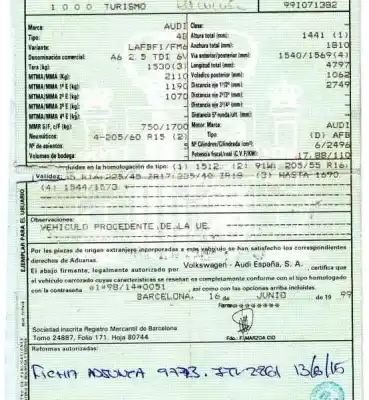 1000 TURISMO 991071382
Marca: AUDI Clase:
Tipo: 4B Altura total (mm): 1441 (1)
Variante: LAFBF1/FM6 Anchura total (mm): 1810
Denominación comercial: A6 2.5 TDI 6V Vía anterior/posterior (mm): 1540/1569(4)
Tara (kg) 1530(3) Longitud total (mm): 4797
MTMA/MMA (kg) 2110 Voladizo posterior (mm): 1062
MTMA/MMA 1º E (kg) 1190 Distancia eje 1º/2º (mm): 2749
MTMA/MMA 2º E (kg) 1070 Distancia eje 2º/3º (mm):
MTMA/MMA 3º E (kg) Distancia eje 3º/4º (mm):
MTMA/MMA 4º E (kg) Distancia 5ª rueda/últ. (mm):
MMR S/F, c/F (kg): 750/1700 Motor: Marca AUDI
Neumáticos: 4-205/60 R15 (2) Tipo (D) AFB
Nº de asientos: Nº Cilindros/Cilindrada (cm³): 6/2496
Volumen de bodega: Potencia fiscal/real (C.V.F/KW) 17.88/110
incluidas en la homologación de tipo: (1) 1512 (2) 91W; 205/55 R16;
Validez: 225/45 ZR17; (3) HASTA 1690
(4) 1544/1573
Observaciones:
VEHICULO PROCEDENTE DE LA UE.
EJEMPLAR PARA EL USUARIO
Por las piezas de origen extranjero incorporadas a este vehículo se han satisfecho los correspondientes
derechos de Aduanas.
El abajo firmante, legalmente autorizado por Volkswagen - Audi España, S. A. , certifica que
el vehículo carrozado cuyas características se reseñan es completamente conforme con el tipo homologado
con la contraseña e1*98/14*0051 , así como con las opciones arriba incluidas.
BARCELONA, 16 de JUNIO de 1999
Fdo.: F. MARZOA CID
Sociedad inscrita Registro Mercantil de Barcelona
Tomo 24887, Folio 171, Hoja 80744
Reformas autorizadas:
FICHA ADJUNTA 13/8/15